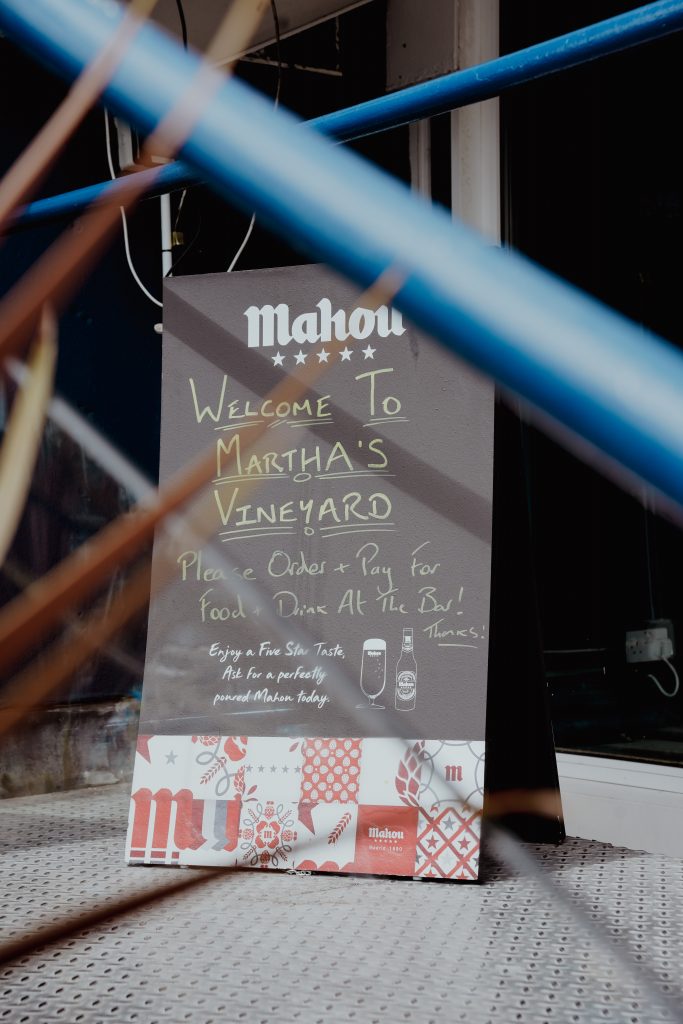 Mahou
★★★★★
WELCOME TO
MARTHA'S
VINEYARD
Please Order + Pay For
Food + Drink At The Bar!
Thanks!
Enjoy a Five Star Taste,
Ask for a perfectly
poured Mahou today.
m
m
Mahou
★★★★★
Madrid 1890